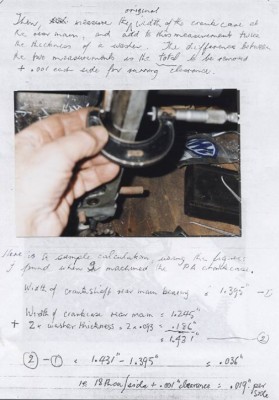 original
Then, measure the width of the crankcase at
the rear main, and add to this measurement twice
the thickness of a washer. The difference between
the two measurements is the total to be removed
+ .001 each side for running clearance.
Here is a sample calculation using the figures
I found when I machined the PA crankcase.
Width of crankshaft rear main bearing : 1.395" — ①
Width of crankcase rear main = 1.245"
+ 2 x washer thickness . 2 x .093 = .186"
1.431" — ②
② - ① = 1.431" - 1.395" = .036"
ie 18 thou/side + .001" clearance = .019" per
side